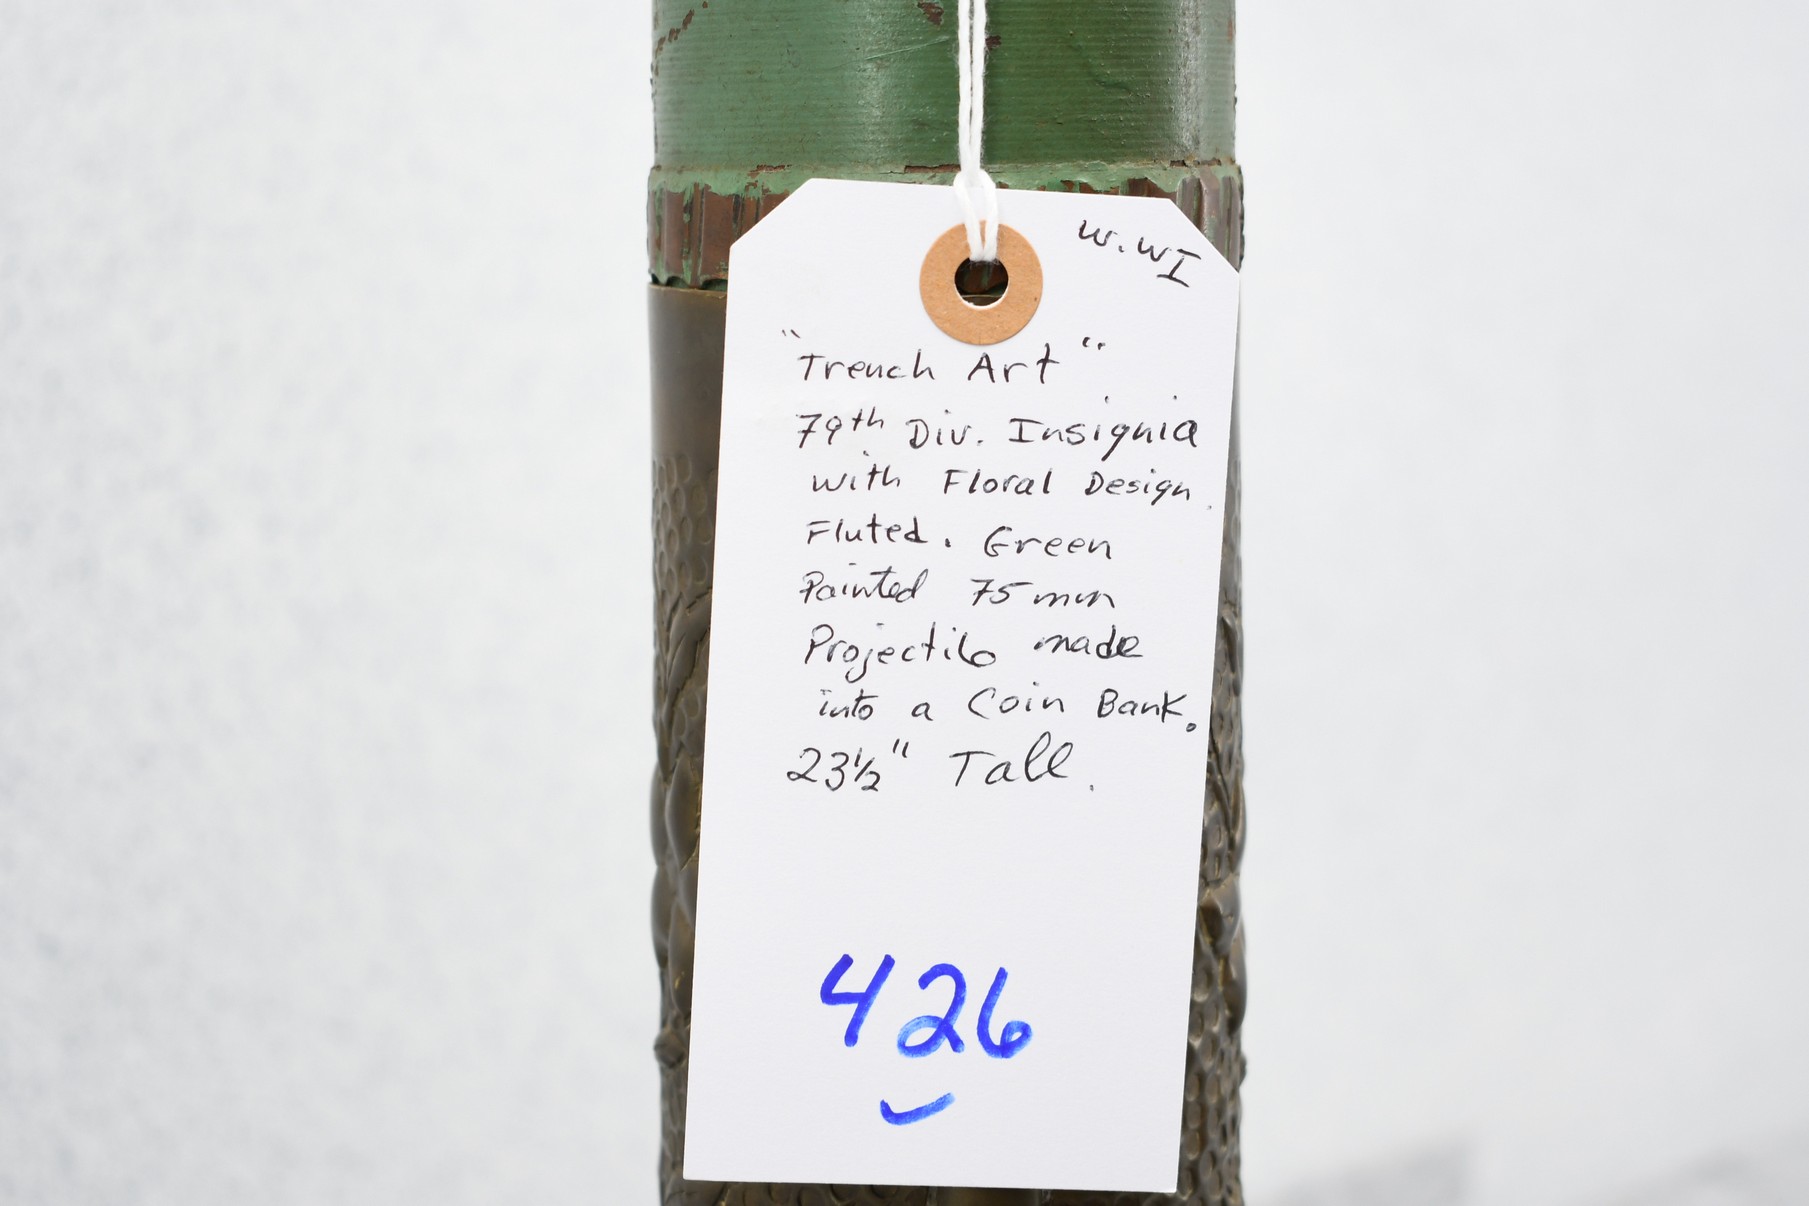 W.WI
"Trench Art"
79th Div. Insignia
with Floral Design.
Fluted. Green
Painted 75mm
Projectile made
into a Coin Bank.
23½" Tall.
426